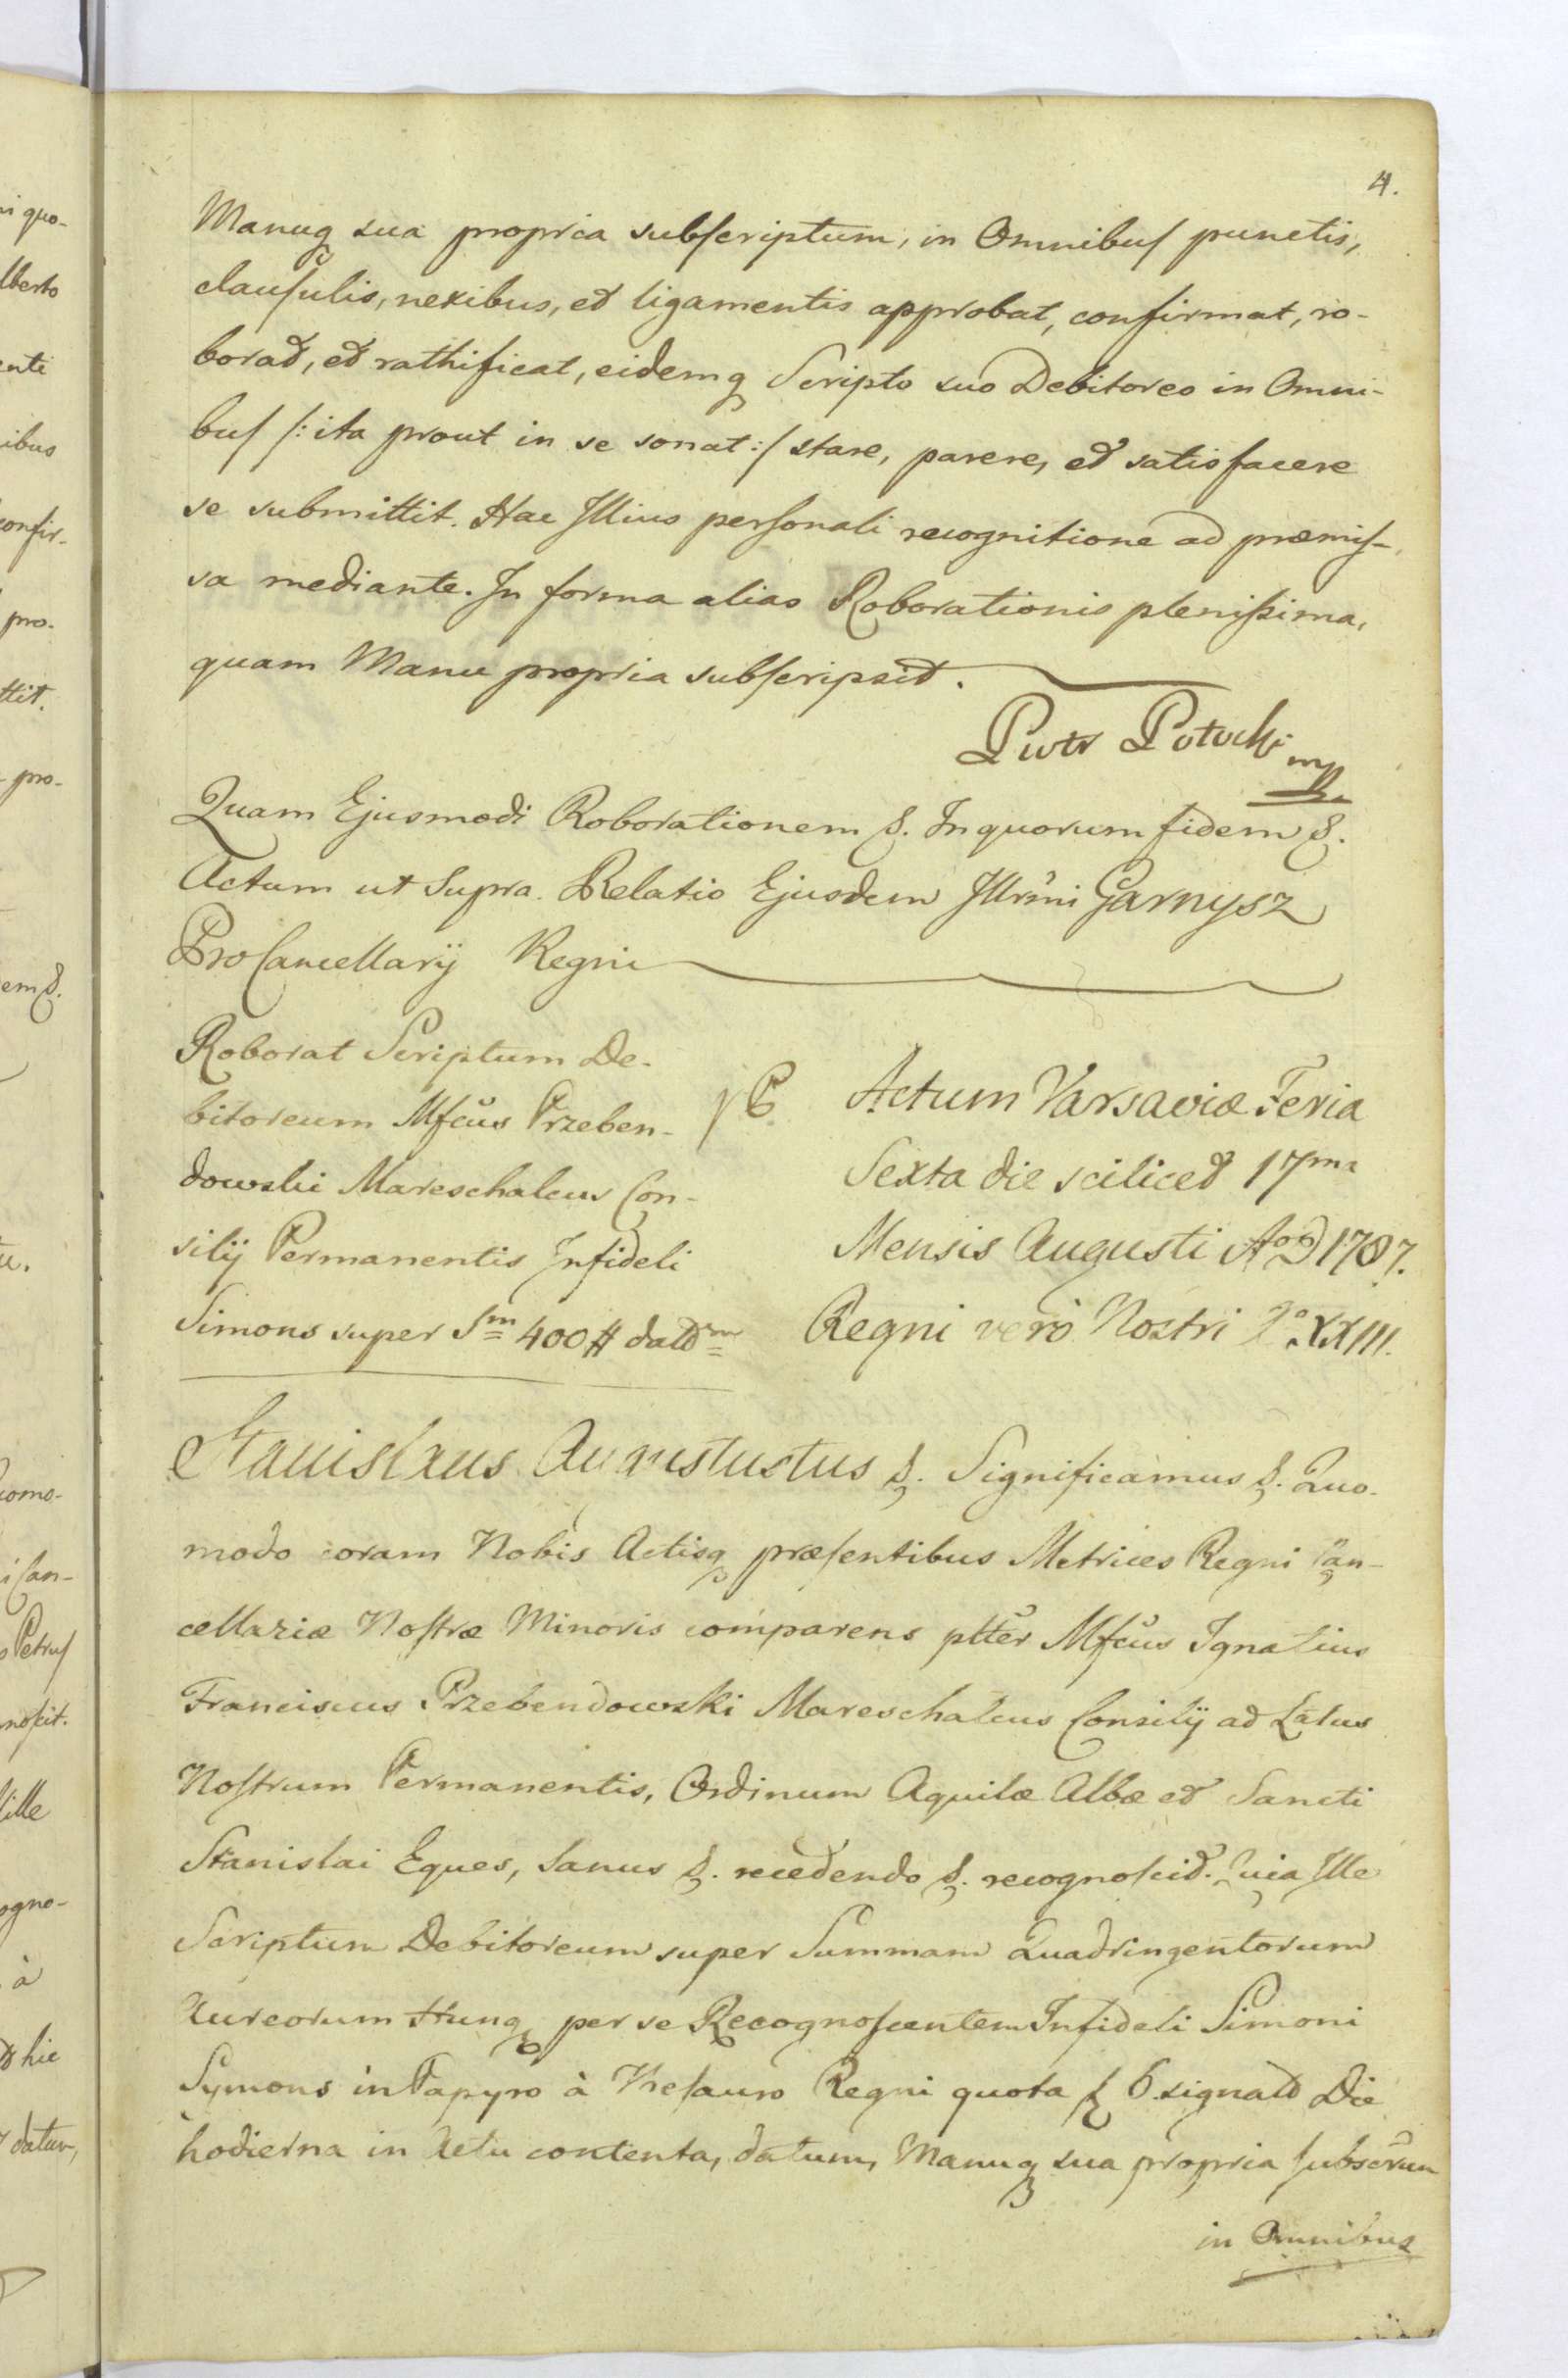 4.
Manuq sua propria subscriptum, in Omnibus punctis,
clausulis, nexibus, et ligamentis approbat, confirmat, ro-
borat, et rathificat, eidemq Scripto suo Debitoreo in Omni-
bus /: ita prout in se sonat :/ stare, parere, et satisfacere
se submittit. Hac Illius personali recognitione ad præmis-
sa mediante. In forma alias Roborationis plenissima,
quam Manu propria subscripsit.
Piotr Potocki mp
Quam Ejusmodi Roborationem &. In quorum fidem &.
Actum ut Supra. Relatio Ejusdem Illrmi Garnysz
ProCancellarij Regni
Roborat Scriptum De-
bitoreum Mfcus Przeben-
dowski Mareschalcus Con-
silij Permanentis Infideli
Simons super Sm 400 # datm
Actum Varsaviæ Feria
Sexta die scilicet 17ma
Mensis Augusti AoD 1787.
Regni vero Nostri Ao XXIII.
Stanislaus Augustustus &. Significamus &. Quo-
modo coram Nobis Actisq præsentibus Metrices Regni Can-
cellariæ Nostræ Minoris comparens pltter Mfcus Ignatius
Franciscus Przebendowski Mareschalcus Consilij ad Latus
Nostrum Permanentis, Ordinum Aquilæ Albæ et Sancti
Stanislai Eques, Sanus &. recedendo &. recognoscit. Quia Ille
Scriptum Debitoreum super Summam Quadringentorum
Aureorum Hung per se Recognoscentem Infideli Simoni
Symons in Papyro à Thesauro Regni quota f 6 signato Die
hodierna in Actu contenta, datum, Manuq sua propria subscrum
in Omnibus